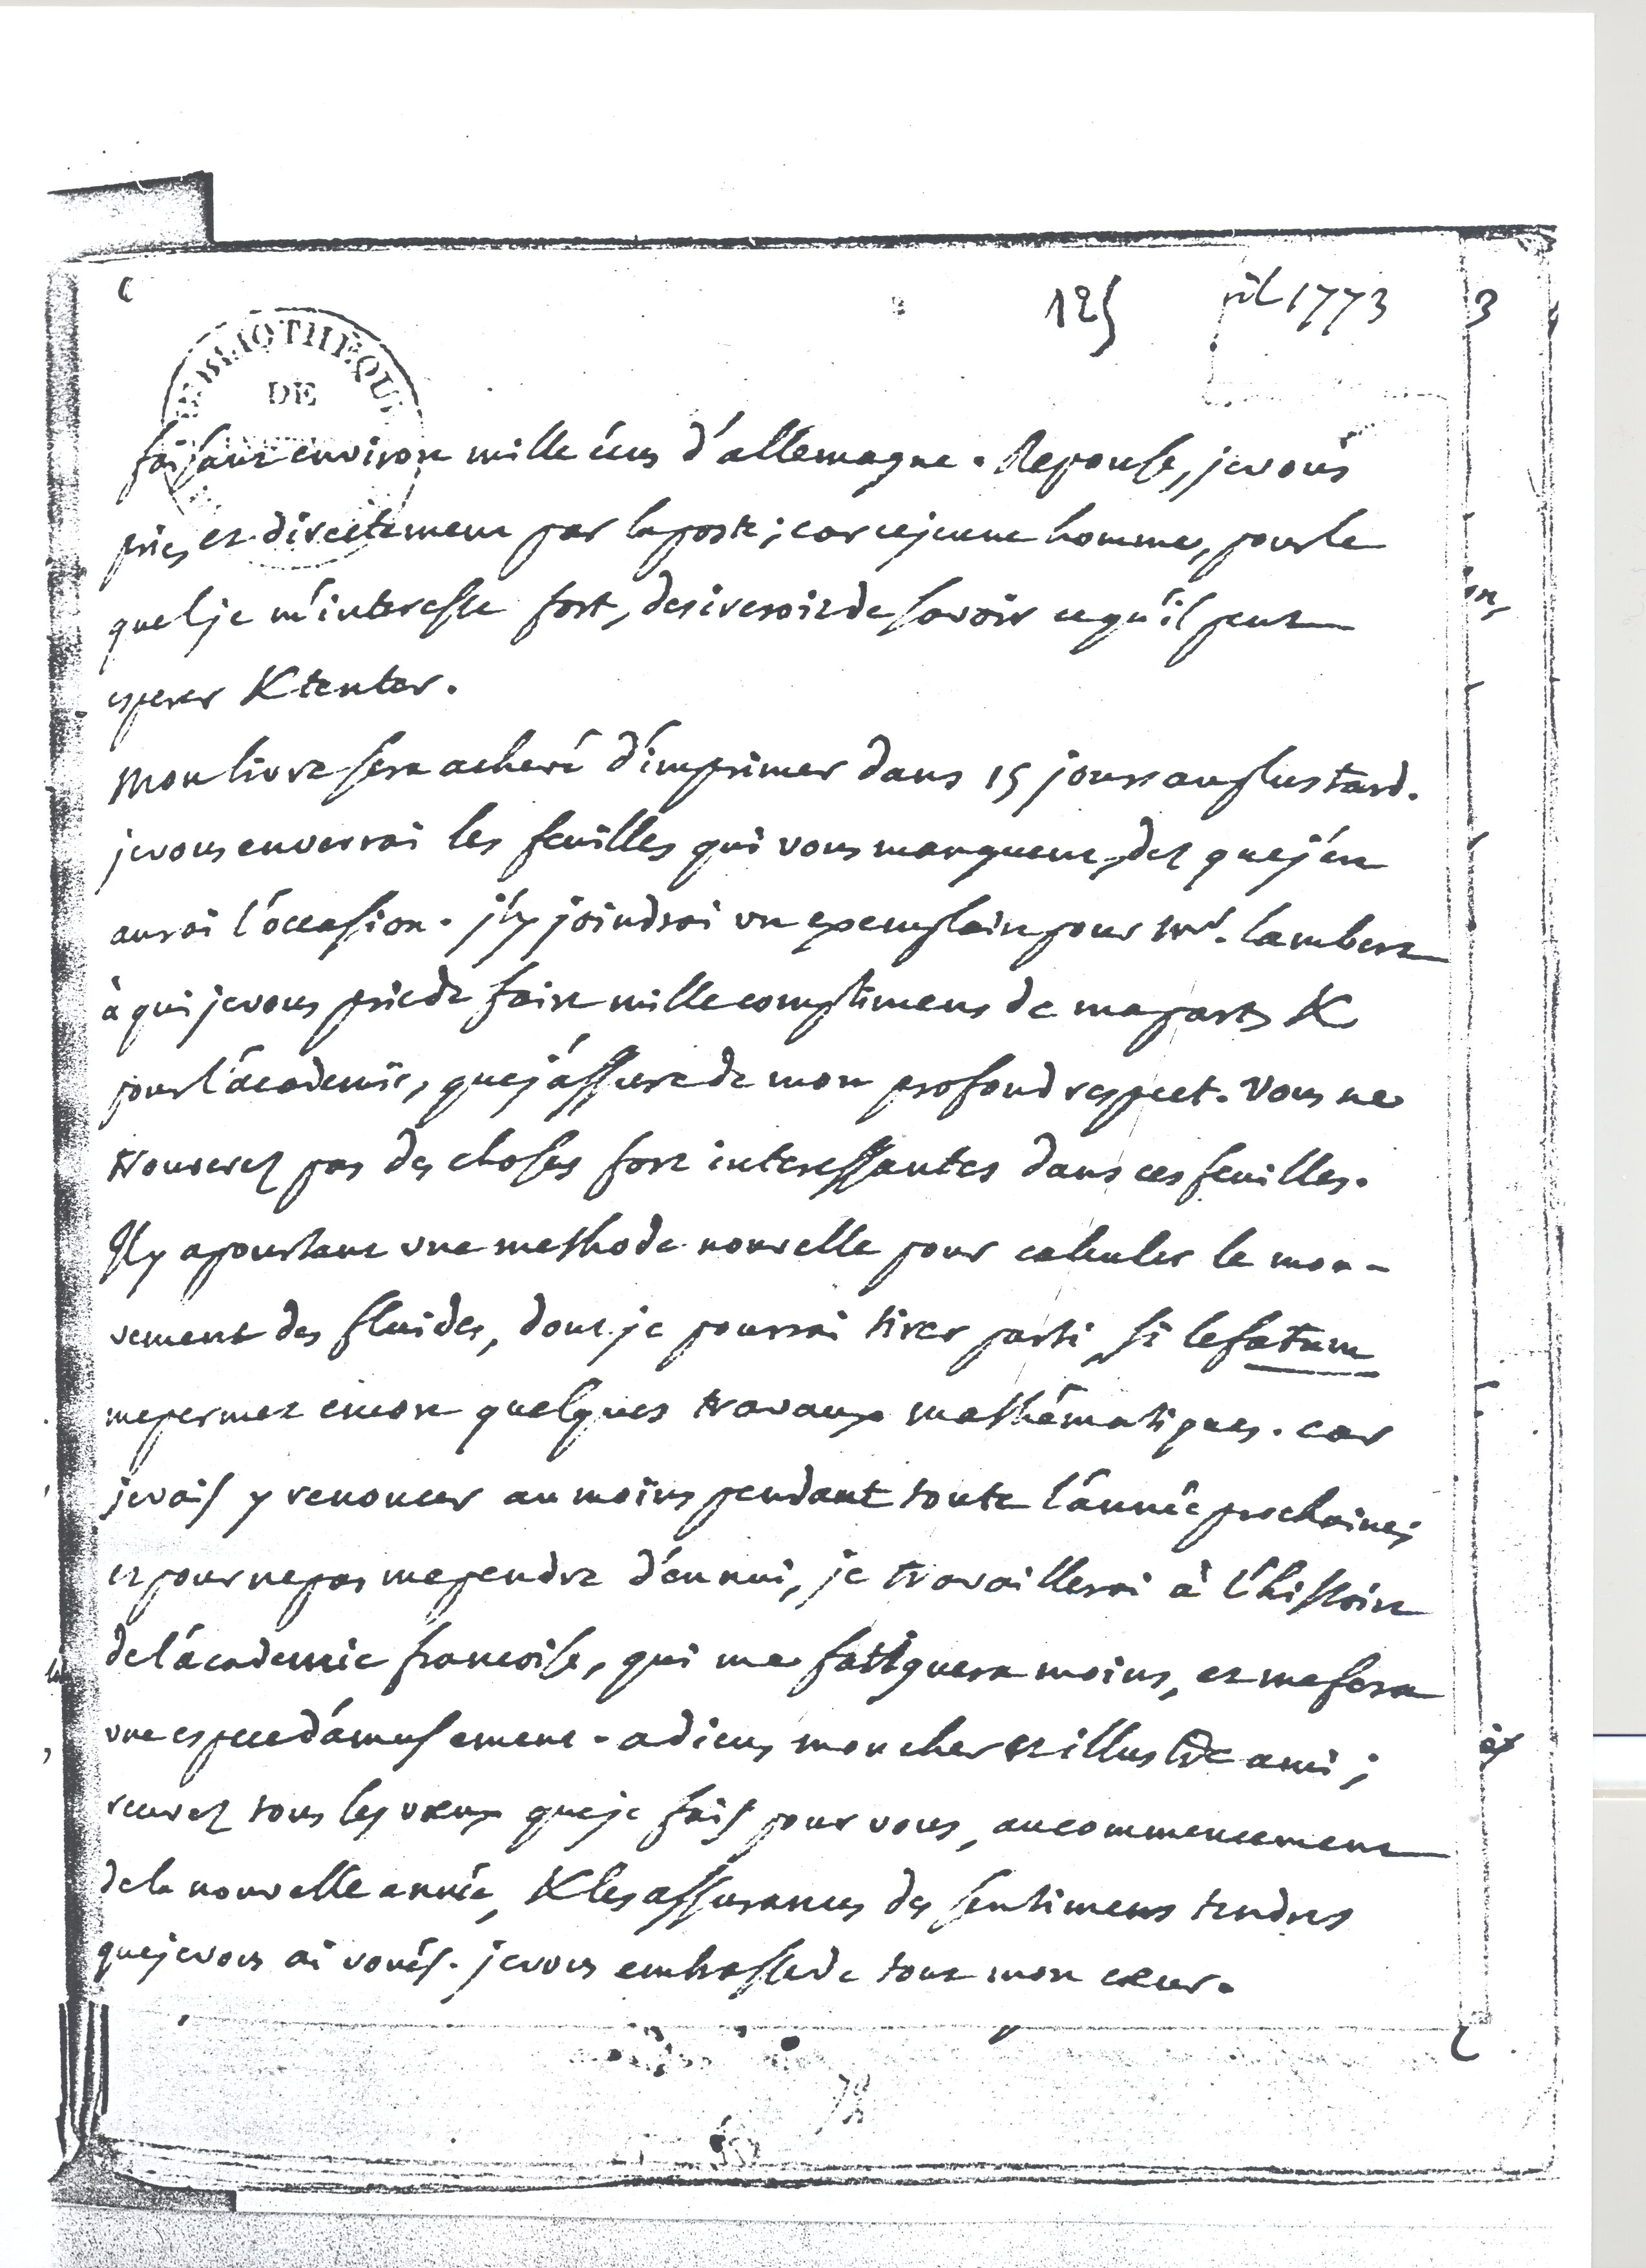 125
ril 1773
3
BIBLIOTHEQUE
DE
faisant environ mille écus d'allemagne. Reponse, je vous
prie, et directement par la poste; car ce jeune homme, pour le
quel je m'interesse fort, desireroit de savoir ce qu'il peut
esperer & tenter.
Mon livre sera achevé d'imprimer dans 15 jours au plus tard.
je vous enverrai les feuilles qui vous manquent, dez que j'en
aurai l'occasion. j'y joindrai un exemplaire pour Mr. Lambert
à qui je vous prie de faire mille complimens de ma part, &
pour l'academie, que j'assure de mon profond respect. Vous ne
trouverez pas des choses fort interessantes dans ces feuilles.
Il y a pourtant une methode nouvelle pour calculer le mou-
vement des fluides, dont je pourrai tirer parti, si le fatum
me permet encore quelques travaux mathématiques. car
je vais y renoncer au moins pendant toute l'année prochaine;
et pour ne pas me pendre d'ennui, je travaillerai à l'histoire
de l'academie françoise, qui me fatiguera moins, et me sera
une espece d'amusement. adieu, mon cher et illustre ami;
recevez tous les vœux que je fais pour vous, au commencement
de la nouvelle année, & les assurances des sentimens tendres
que je vous ai voués. je vous embrasse de tout mon cœur.